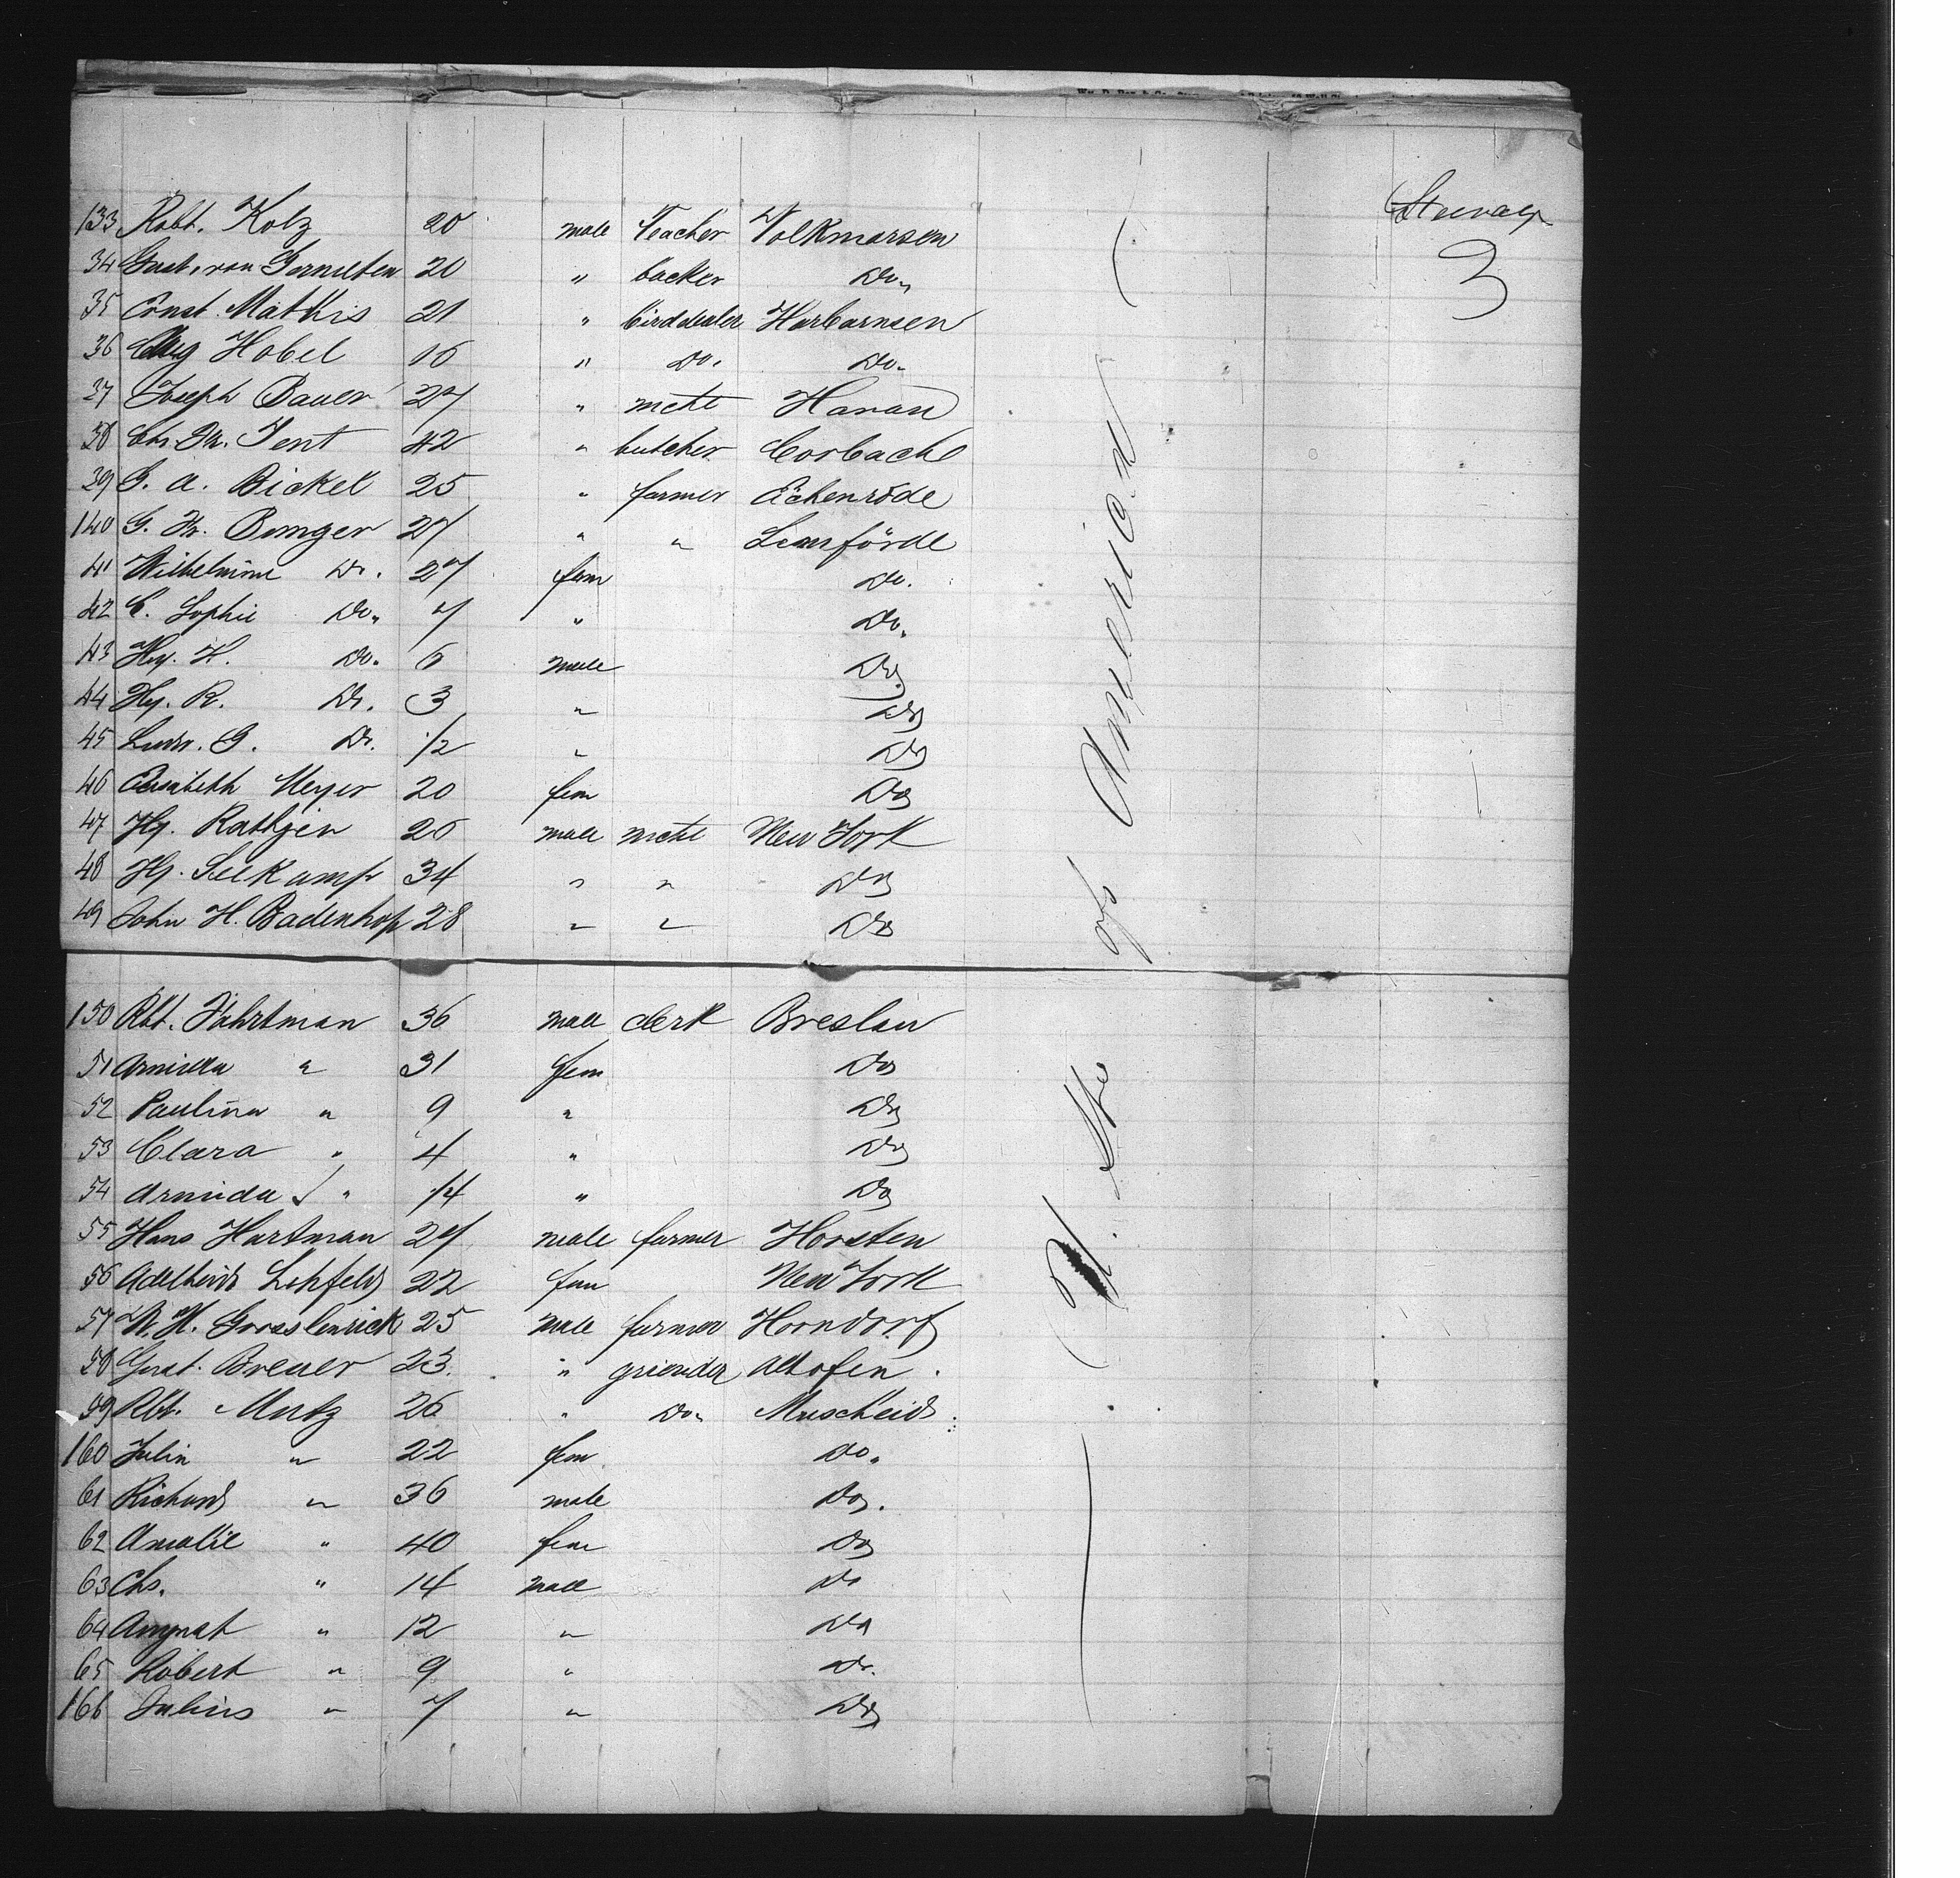 Steerage
3
133 Robt. Kolz 20 male Teacher Volkmarsen
34 Gust. van 20 " backer Do.
35 Ernst Mathis 21 " birddealer Harbarnsen
36 Aug Hobel 16 " Do. Do.
37 Joseph Bauer 27 " mcht Hanau
38 Chr. Fr. Tent 42 " butcher Corbach
39 G. A. Bickel 25 " farmer Eichenrode
140 G. Hr. Bunger 27 " " Lemförde
41 Wilhelmine Do. 27 fem Do.
42 C. Sophie Do. 7 " Do.
43 Hy. H. Do. 6 male Do
44 Hy. R. Do. 3 " Do
45 Ludw. G. Do. 1/2 " Do
46 Elisabeth Meyer 20 fem Do
47 Hy. Rathjen 26 male mcht New York
48 Hy. Seekamp 34 " " Do
49 John H. Badenhop 28 " " Do
150 Rbt. Fahrtman 36 male clerk Breslau
51 " 31 fem Do
52 Paulina " 9 " Do
53 Clara " 4 " Do
54 " 1/4 " Do
55 Hans Hartman 27 male farmer Horsten
56 Adelheid Lehfeld 22 fem New York
57 W. H. 25 male farmer Horndorf
58 Gust. Breuer 23 " grinder Altofen
59 Rbt. Mutz 26 " Do. Muscheid
160 Julia " 22 fem do.
61 Richard " 36 male Do.
62 Amalie " 40 fem Do
63 Chs. " 14 male Do
64 August " 12 " Do
65 Robert " 9 " Do.
166 Julius " 7 " Do
U. Sts of America